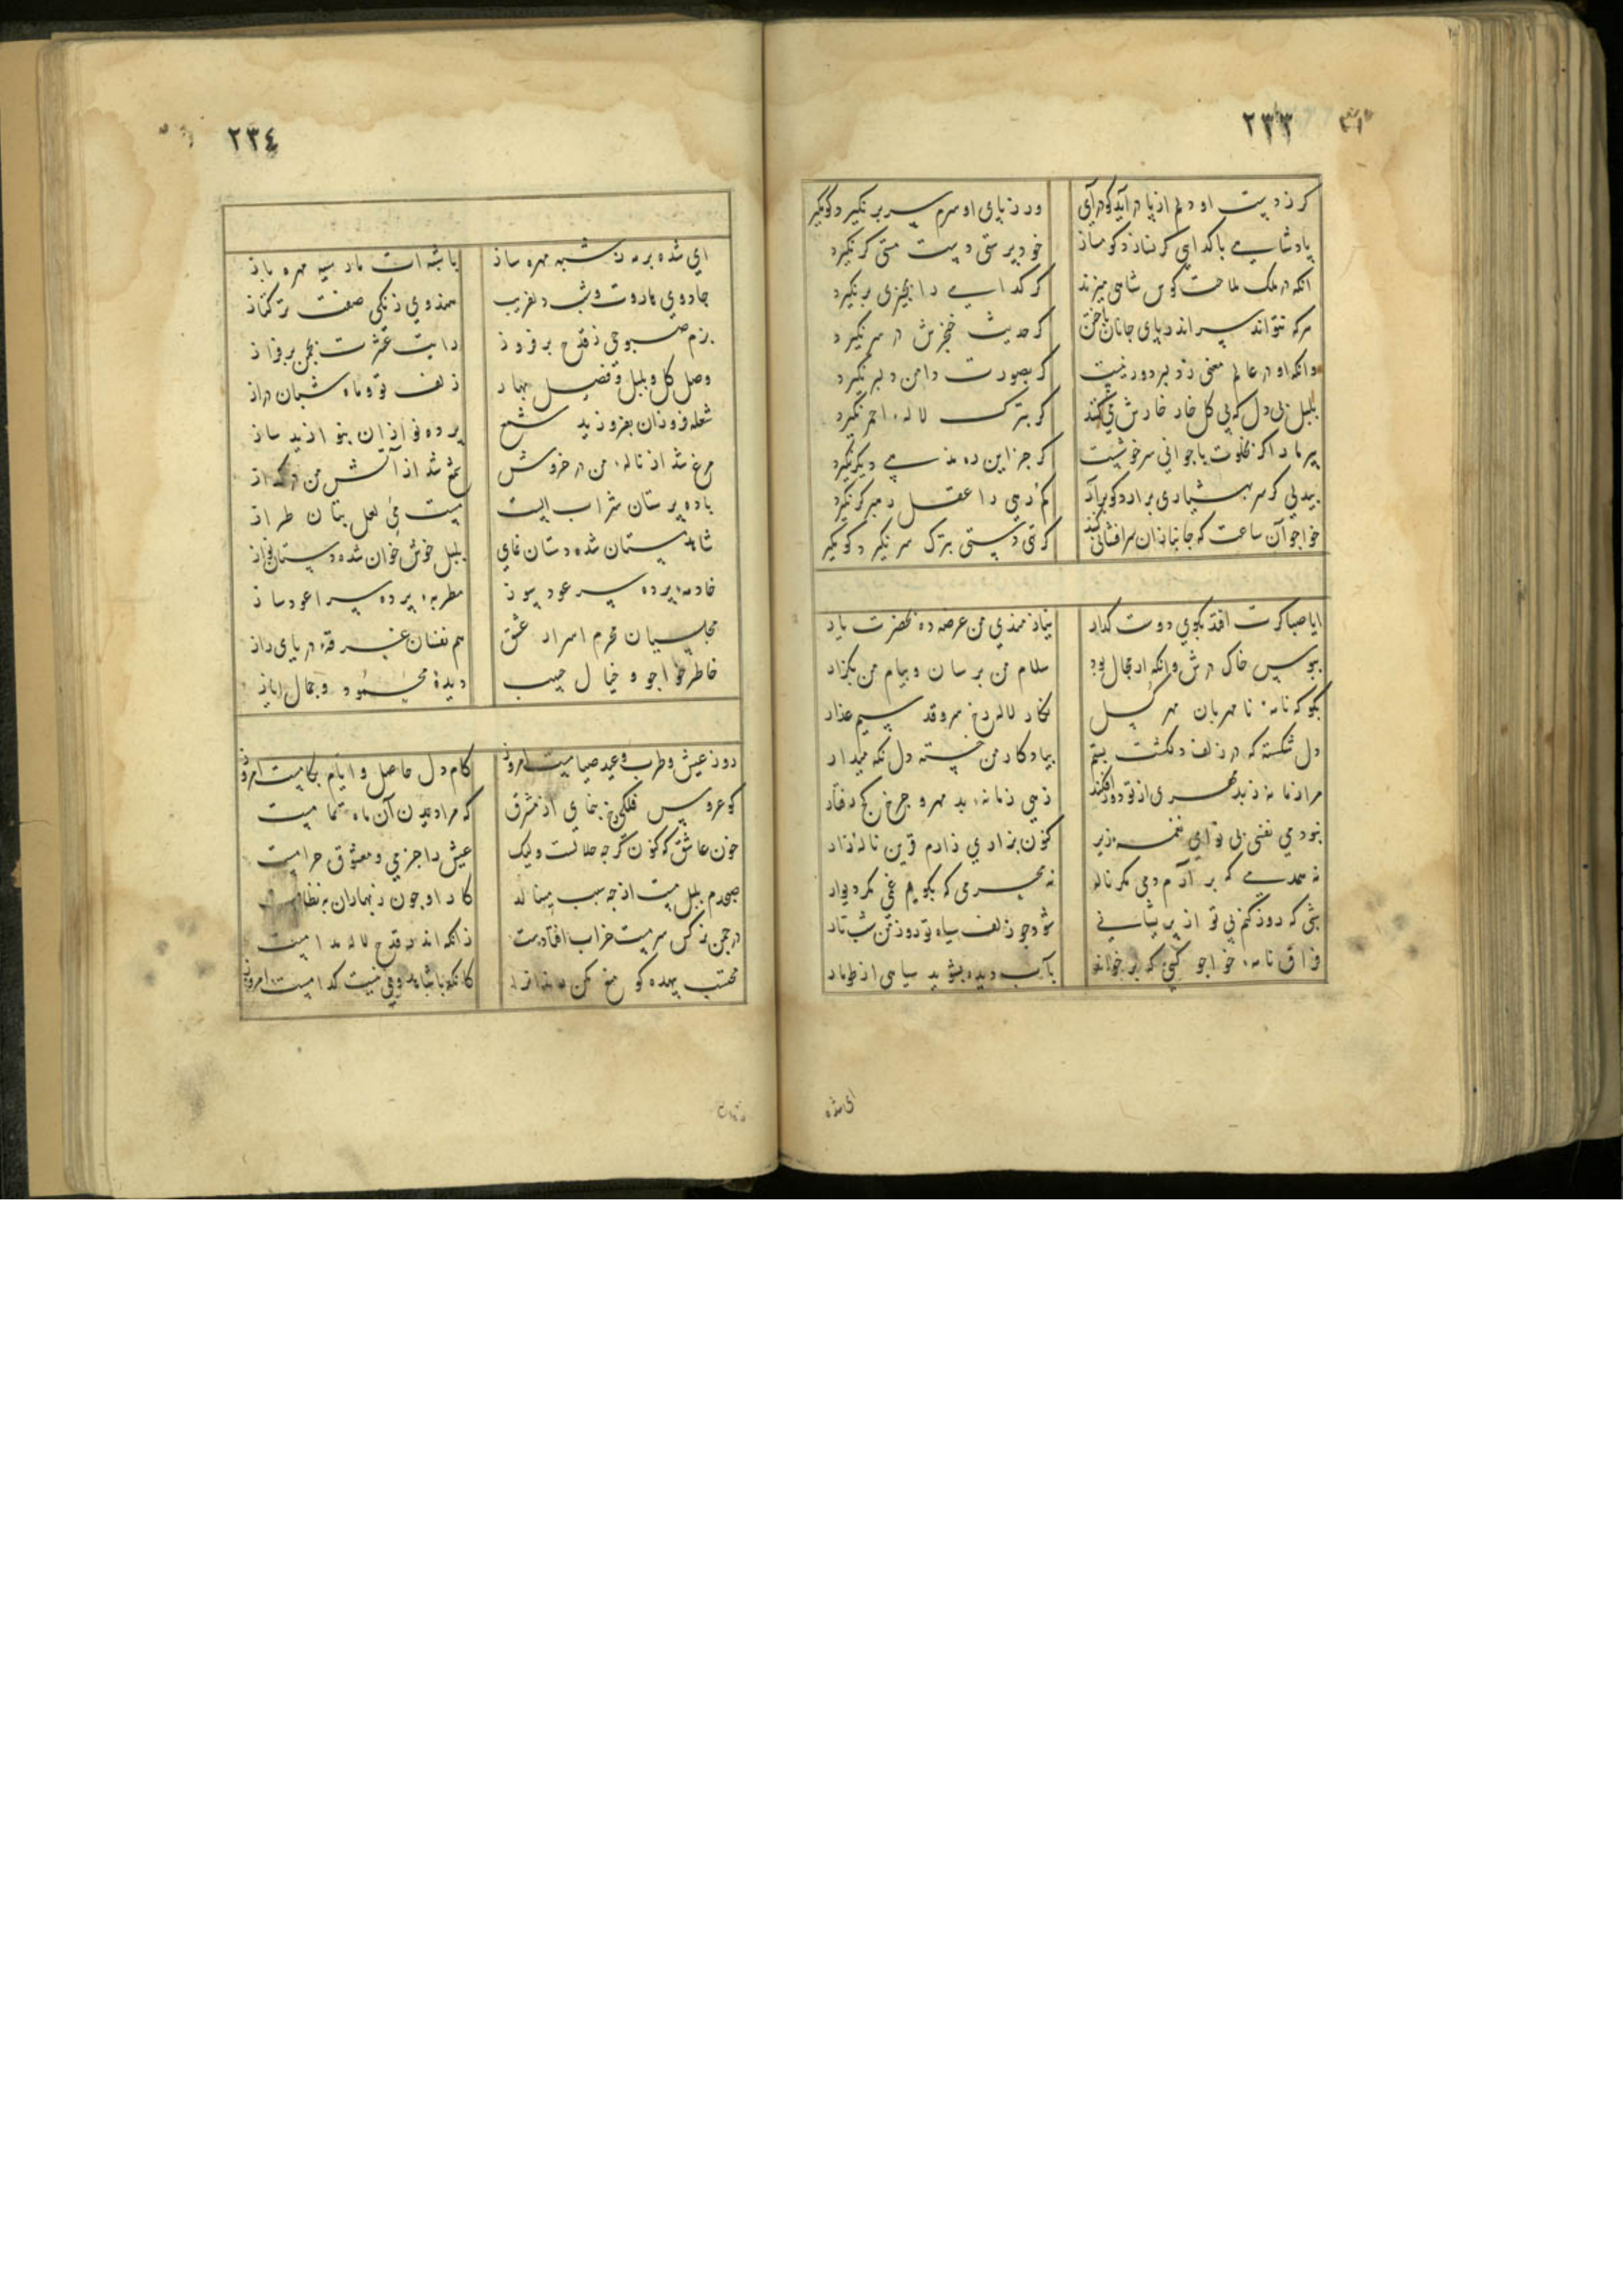 ٢٣٣
کر ز دست او دلم از پا در آید کو در آی ور ز پای او سرم سر بر نگیرد کو مگیر
پادشاهی با گدایی گر نسازد کو مساز خود پرستی دست مستی گر نگیرد
آنکه در ملک ملاحت کوس شاهی میزند گر گدایی را بچیزی بر نگیرد
هرکه نتواند سر اندر پای جانان باختن گر حدیث خنجرش در سر نگیرد
وانکه او در عالم معنی ز دلبر دور نیست گر بصورت دامن دلبر نگیرد
بلبل بی دل که بی گل خار خارش گر بترک لاله احمر نگیرد
پیر ما را گر بخلوت با جوانی سر خوشست گر جز این ره مذهبی دیگر نگیرد
بیدلی گر سر بهشیاری بر آرد کو بر آر گر دمی را عقل
خواجو آن ساعت که جانبازان سر افشانی کنند گر تهی دستی بترک سر نگیرد کو مگیر
ایا صبا گرت افتد بکوی دوست گذار نیازمندی من عرضه ده بحضرت یار
ببوس خاک درش وانگه ار مجال بود سلام من برسان و پیام من بگزار
بگو که نامه نا مهربان مهر گسل نگار لاله رخ سرو قد سیم عذار
دل شکسته که در زلف دلکشت بستم بیادگار من خسته دل نگه میدار
مرا زمانه ز بد مهری از تو دور افکند زهی زمانه بد مهر و چرخ کج رفتار
نبودمی نفسی بی نوای نغمه زیر کنون بزاری زارم قرین ناله زار
نه همدمی که بر آرم دمی مگر ناله نه محرمی که بگویم غمی مگر دیوار
شبی که روز کنم بی تو از پریشانی شود چو زلف سیاه تو روز من شب تار
فراق نامه خواجو کسی که بر خواند بآب دیده بشوید سیاهی از طومار
ای شده
٢٣٤
ای شده بر مه ز شبه مهره ساز با شبه ات مار سیه مهره باز
جادوی هاروت وشت دلفریب هندوی زنگی صفتت ترکتاز
بزم صبوحی ز قدح بر فروز رایت عشرت بچمن بر فراز
وصل گل و بلبل و فصل بهار زلف تو و ماه شبان دراز
شعله فروزان بفروزید شمع پرده نوازان بنوازید ساز
مرغ شد از ناله من در خروش شمع شد از آتش من در گداز
باده پرستان شراب الست مست می لعل بتان طراز
شاهد مستان شده دستان نمای بلبل خوش خوان شده دستان نواز
خادمه پرده سر عود سوز مطربه پرده سرا عود ساز
مجلسیان محرم اسرار عشق هم نفسان غرقه دریای راز
خاطر خواجو و خیال حبیب دیده محمود و جمال ایاز
روز عیش و طرب و عید صیامست امروز کام دل حاصل و ایام بکامست امروز
کو عروس فلکی رخ بنمای از مشرق که مرا دیدن آن ماه تمامست
خون عاشق که کنون گرچه حلالست ولیک عیش را جز می و معشوق حرامست
صبحدم بلبل مست از چه سبب مینالد کار او چون ز بهاران بنظامست
در چمن نرگس سرمست خراب افتادست زانکه اندر قدح لاله مدامست
محتسب بیهده گو منع مکن کانکه با شاهد و می نیست کدامست امروز